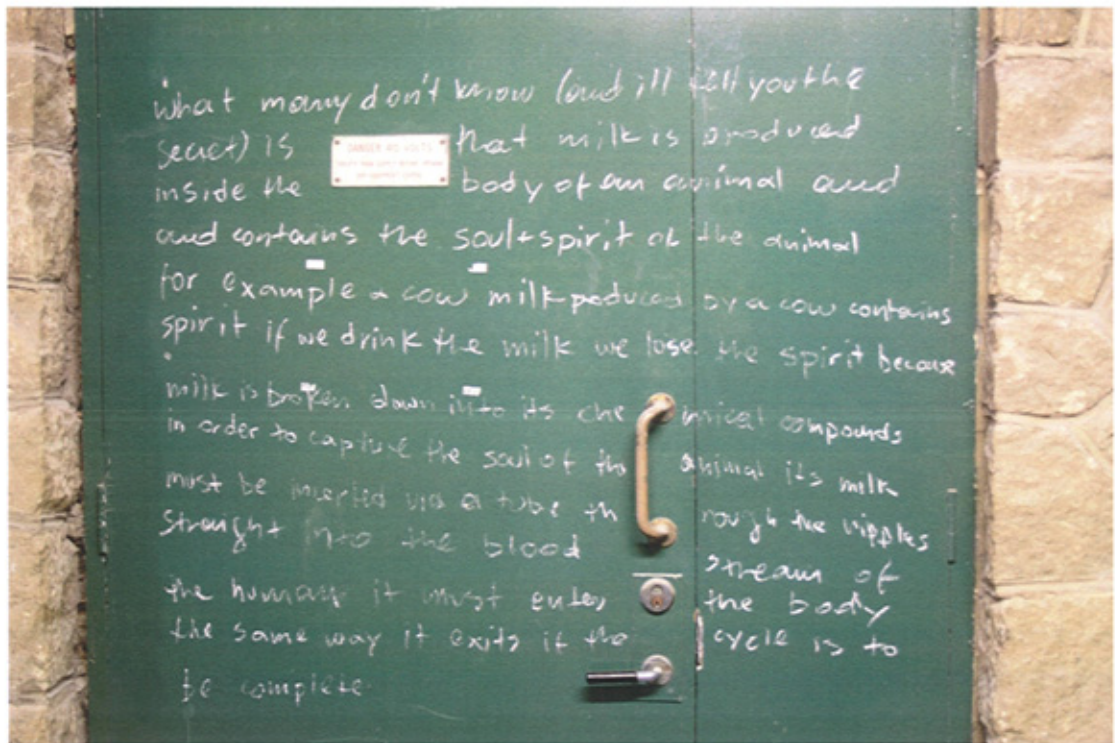 what many don't know (and ill tell you the
secret) is that milk is produced
DANGER 415 VOLTS
inside the body of an animal and
and contains the soul+spirit of the animal
for example a cow milk poduced by a cow contains
spirit if we drink the milk we lose the spirit because
milk is broken down into its chemical compounds
in order to capture the soul of the animal its milk
must be inserted via a tube through the nipples
straight into the blood stream of
the human it must enter the body
the same way it exits if the cycle is to
be complete